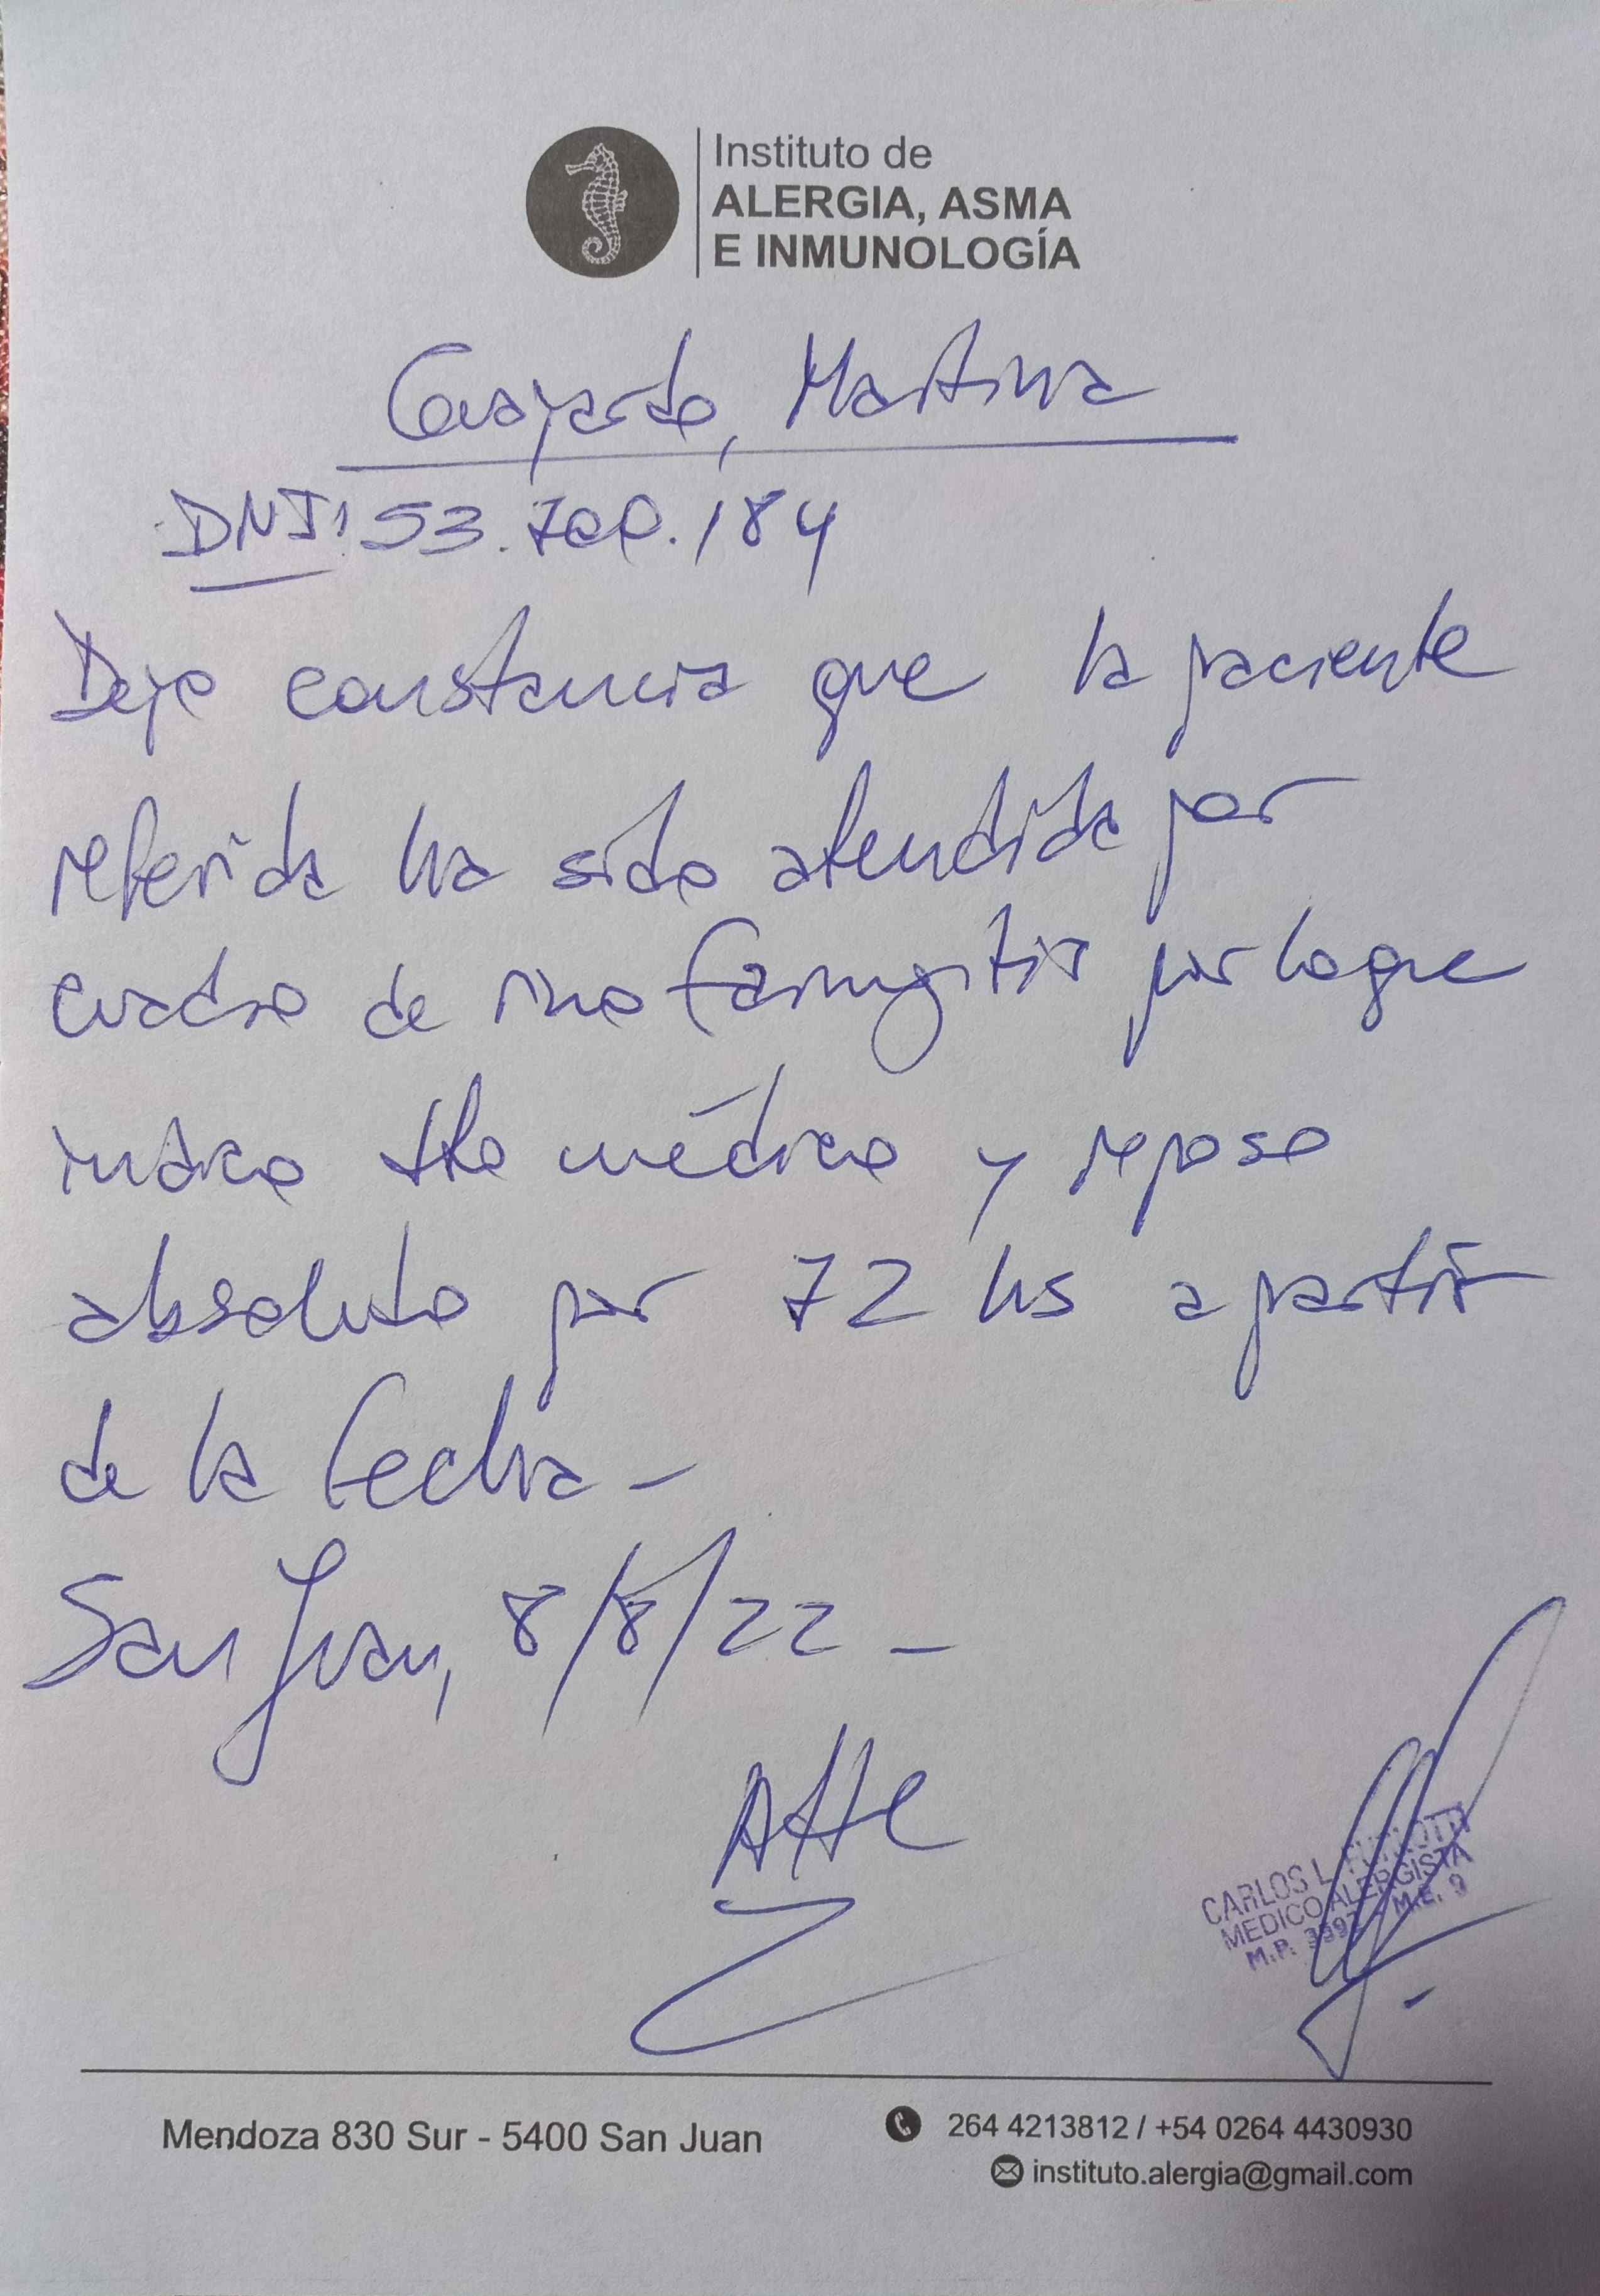 Instituto de
ALERGIA, ASMA
E INMUNOLOGÍA
Martina
DNI: 53.700.184
Dejo constancia que la paciente
referida ha sido atendida por
cuadro de rinofaringitis por lo que
indico tto médico y reposo
absoluto por 72 hs a partir
de la fecha -
San Juan, 8/8/22 -
Atte
CARLOS L.
MEDICO ALERGISTA
M.P. M.E. 9
Mendoza 830 Sur - 5400 San Juan
264 4213812 / +54 0264 4430930
instituto.alergia@gmail.com